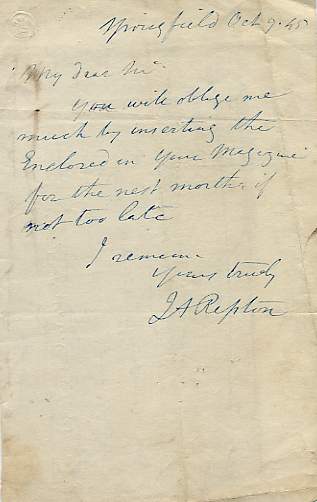 Springfield Oct 9. 45
My dear Sir
You will oblige me
much by inserting the
Enclosed in your Magazine
for the next month if
not too late
I remain
Yours truly
J A Repton